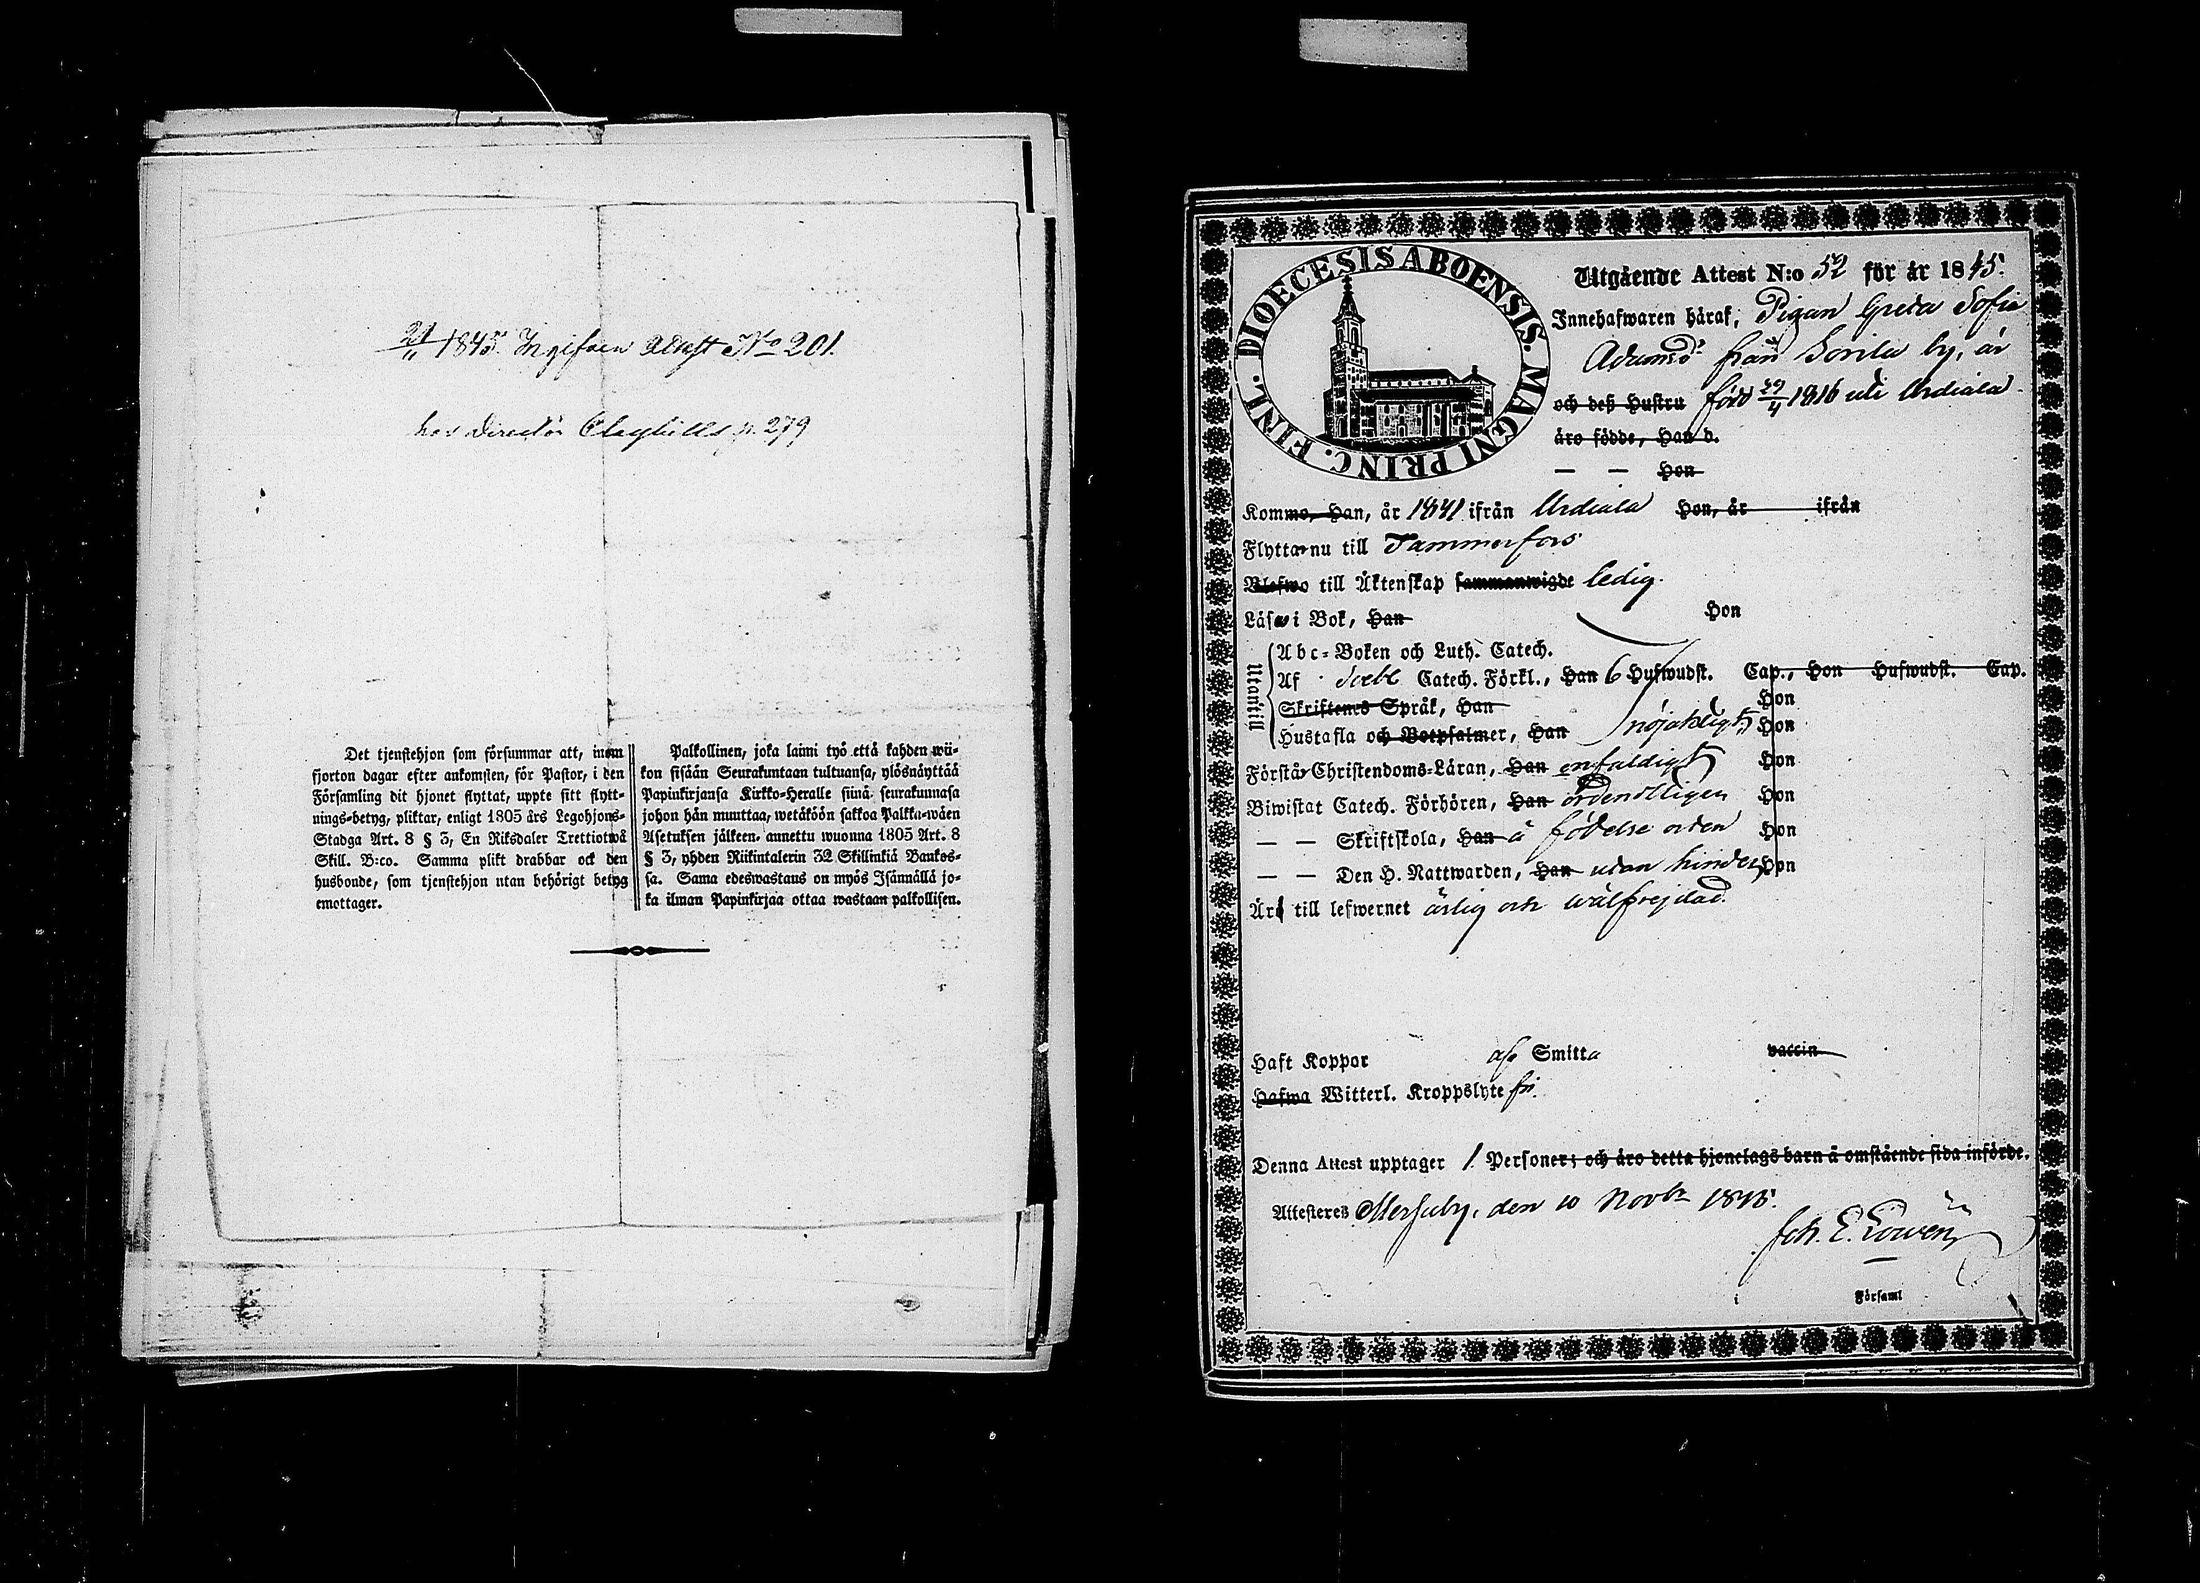 21/11 1845. Ingifven Attest No 201.
hos Directör Clayhills p. 279
Det tjenstehjon som försummar att, inom
fjorton dagar efter ankomsten, för Pastor, i den
Församling dit hjonet flyttat, uppte sitt flytt-
nings-betyg, pliktar, enligt 1805 års Legohjons-
Stadga Art. 8 § 3, En Riksdaler Trettiotwå
Skill. B:co. Samma plikt drabbar ock den
husbonde, som tjenstehjon utan behörigt betyg
emottager.
Palkollinen, joka laimi työ että kahden wii-
kon sisään Seurakuntaan tultuansa, ylösnäyttää
Papinkirjansa Kirkko-Heralle siinä seurakunnasa
johon hän muuttaa, wetäköön sakkoa Palkka-wäen
Asetuksen jälkeen annettu wuonna 1805 Art. 8
§ 3, yhden Riikintalerin 32 Skillinkiä Bankos-
sa. Sama edeswastaus on myös Isännällä jo-
ka ilman Papinkirjaa ottaa wastaan palkollisen.
DIOECESIS ABOENSIS. MAGNI PRINC. FINL.
Utgående Attest N:o 52 för år 1845.
Innehafwaren häraf, Pigan Greta Sofia
Adamsdr från Sorila by, är
och deß Hustru född 29/4 1816 uti Urdiala
äro födde, Han d.
— — Hon
Kommo, Han, år 1841 ifrån Urdiala Hon, år ifrån
Flyttar nu till Tammerfors
Blefwo till Äktenskap sammanwigde ledig.
Läsa i Bok, Han Hon
Utantill
Abc-Boken och Luth. Catech.
Af Svebl Catech. Förkl., Han 6 Hufwudst. Cap., Hon Hufwudst. Cap.
Skriftenes Språk, Han Hon
Hustafla och Botpsalmer, Han nöjaktigt Hon
Förstår Christendoms-Läran, Han enfaldigt Hon
Biwistat Catech. Förhören, Han ordentligen Hon
— — Skriftskola, Han å födelse orten Hon
— — Den H. Nattwarden, Han utan hinder Hon
Är till lefwernet ärlig och wälfrejdad.
Haft Koppor af Smitta vaccin
Hafwa Witterl. Kroppslyte fri.
Denna Attest upptager 1. Personer; och äro detta hjonelags barn å omstående sida införde.
Attesteres Messuby, den 10 Novbr 1845.
Joh. E. Lowén
i Församl